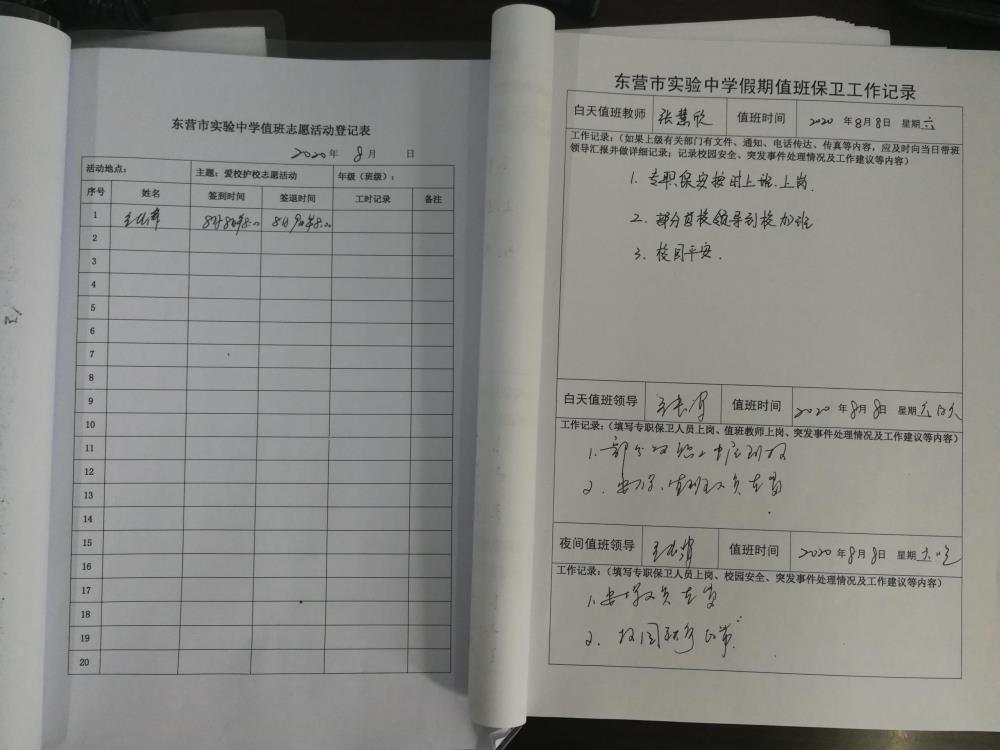 东营市实验中学值班志愿活动登记表
2020 年 8 月 日
活动地点： 主题：爱校护校志愿活动 年级（班级）：
序号 姓名 签到时间 签退时间 工时记录 备注
1
2
3
4
5
6
7
8
9
10
11
12
13
14
15
16
17
18
19
20
东营市实验中学假期值班保卫工作记录
白天值班教师 张慧欣 值班时间 2020 年 8 月 8 日 星期 六
工作记录：（如果上级有关部门有文件、通知、电话传达、传真等内容，应及时向当日带班
领导汇报并做详细记录；记录校园安全、突发事件处理情况及工作建议等内容）
1. 专职保安按时上班.上岗.
2. 部分学校领导到校加班
3. 校园平安.
白天值班领导 值班时间 2020 年 8 月 8 日 星期 六
工作记录：（填写专职保卫人员上岗、值班教师上岗、突发事件处理情况及工作建议等内容）
1. 部分
2. 值班人员在岗
夜间值班领导 值班时间 2020 年 8 月 8 日 星期 六
工作记录：（填写专职保卫人员上岗、校园安全、突发事件处理情况及工作建议等内容）
1. 人员在岗
2. 校园秩序正常.